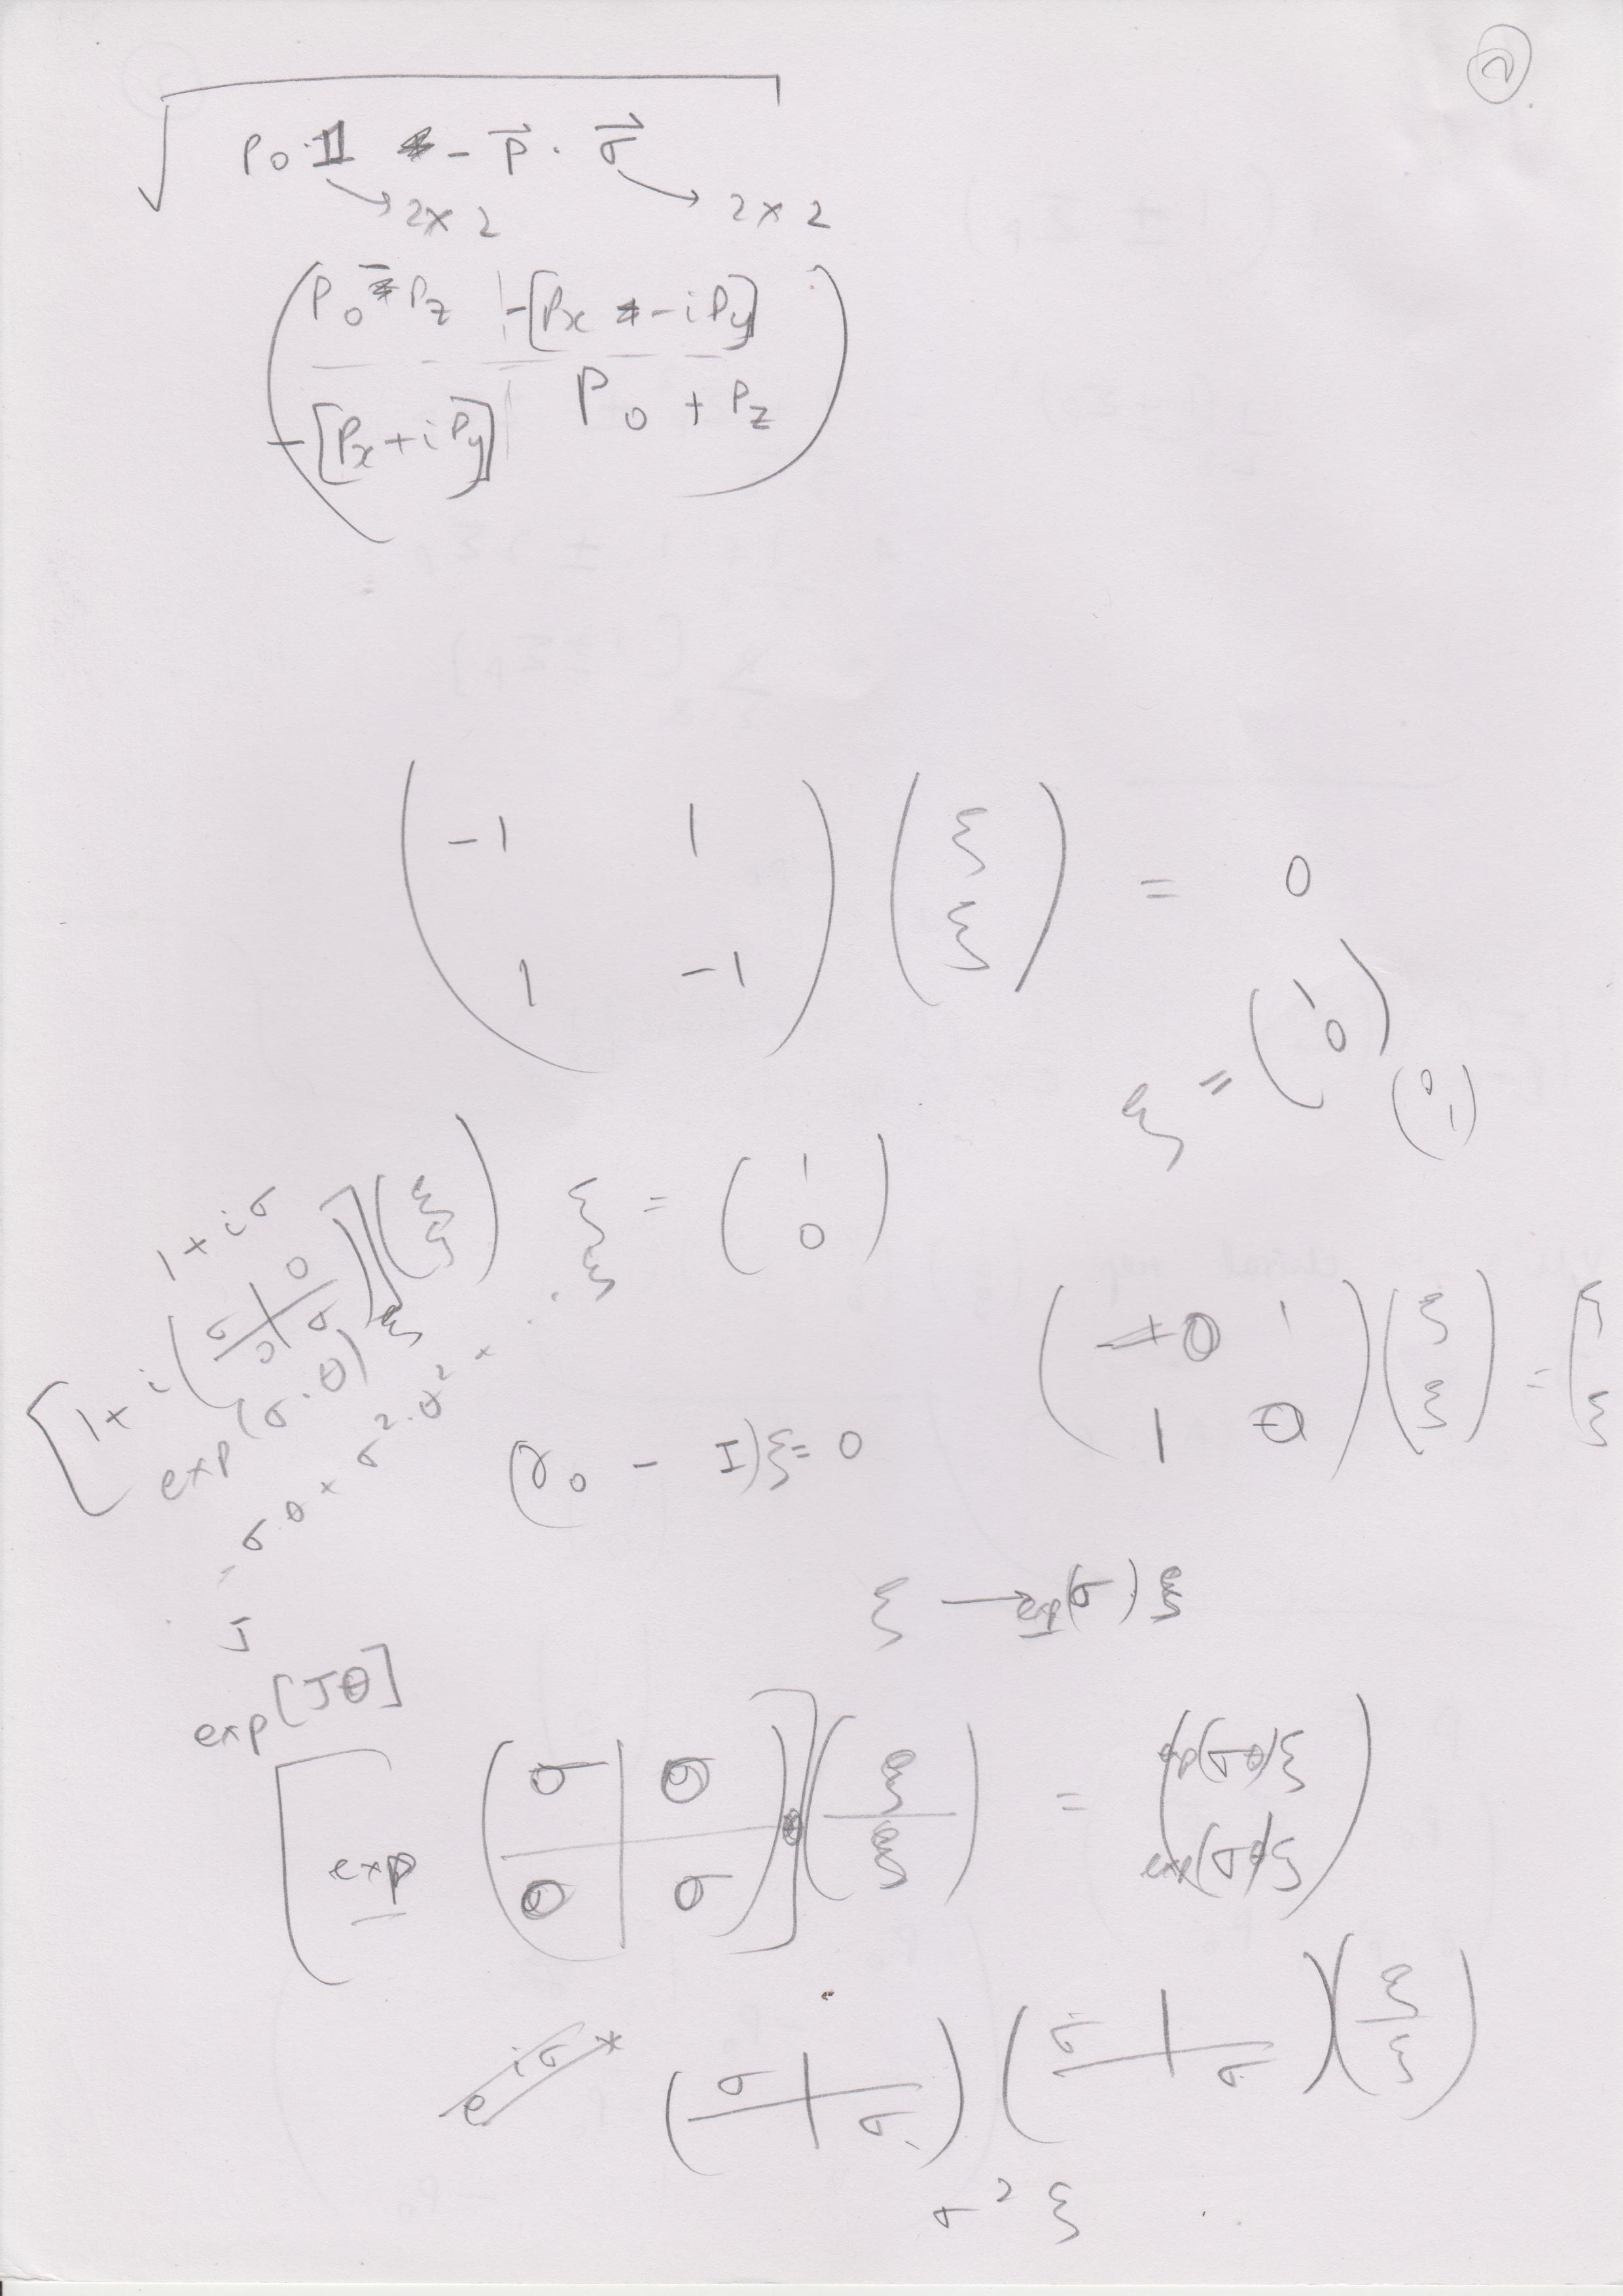 2
√(p₀·𝟙 - p⃗ · σ⃗)
→ 2×2 → 2×2
( p₀ - p_z | -[p_x - i p_y]
-[p_x + i p_y] | p₀ + p_z )
( -1 1
1 -1 ) ( ξ
ξ ) = 0
ξ = ( 1
0 ) ( 0
1 )
ξ = ( 1
0 )
1 + iσ
[1 + i ( σ | 0
0 | σ ) ] ( ξ
ξ )
exp(σ·θ) ξ
σ·θ + σ²·θ² + ...
ξ
( 0 1
1 0 ) ( ξ
ξ ) = ( ξ
ξ
(γ₀ - I)ξ = 0
ξ → exp(σ) ξ
J
exp[Jθ]
[ exp ( σ | 0
0 | σ ) θ ] ( ξ
ξ ) = ( exp(σθ)ξ
exp(σθ)ξ )
e^{iσ} *
( σ |
| σ ) ( σ |
| σ ) ( ξ
ξ )
σ² ξ